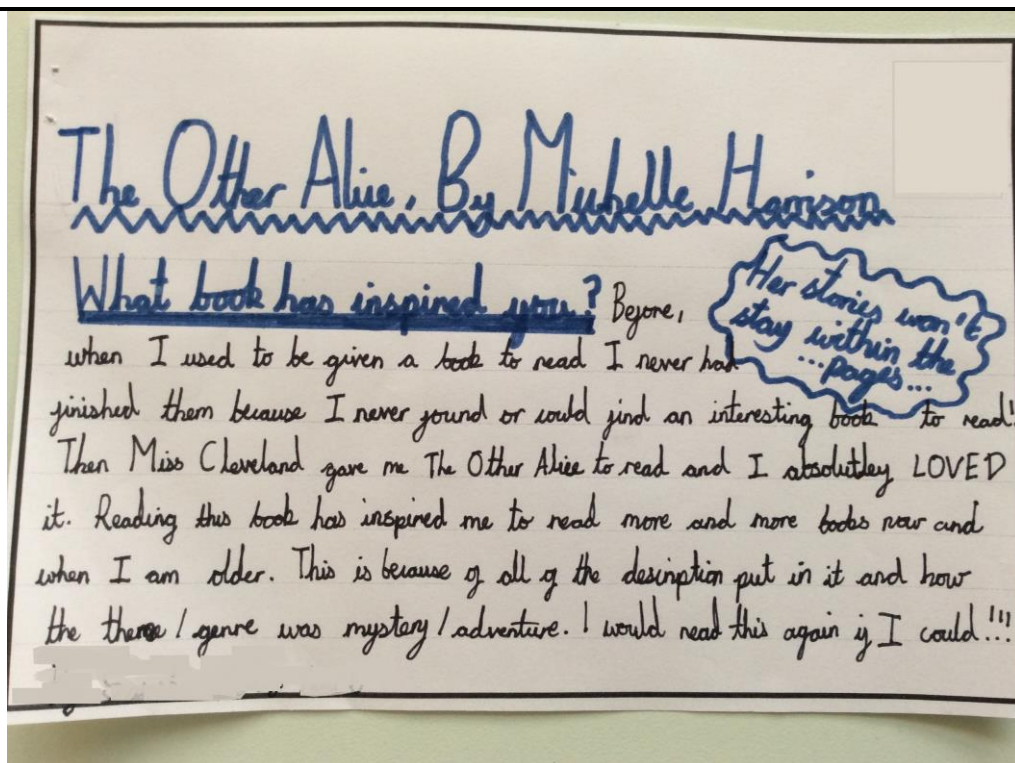 The Other Alice. By Michelle Harrison
What book has inspired you? Before,
Her stories won't
stay within the
...pages...
when I used to be given a book to read I never had
finished them because I never found or could find an interesting book to read!
Then Miss Cleveland gave me The Other Alice to read and I absolutley LOVED
it. Reading this book has inspired me to read more and more books now and
when I am older. This is because of all of the description put in it and how
the theme / genre was mystery / adventure. I would read this again if I could!!!